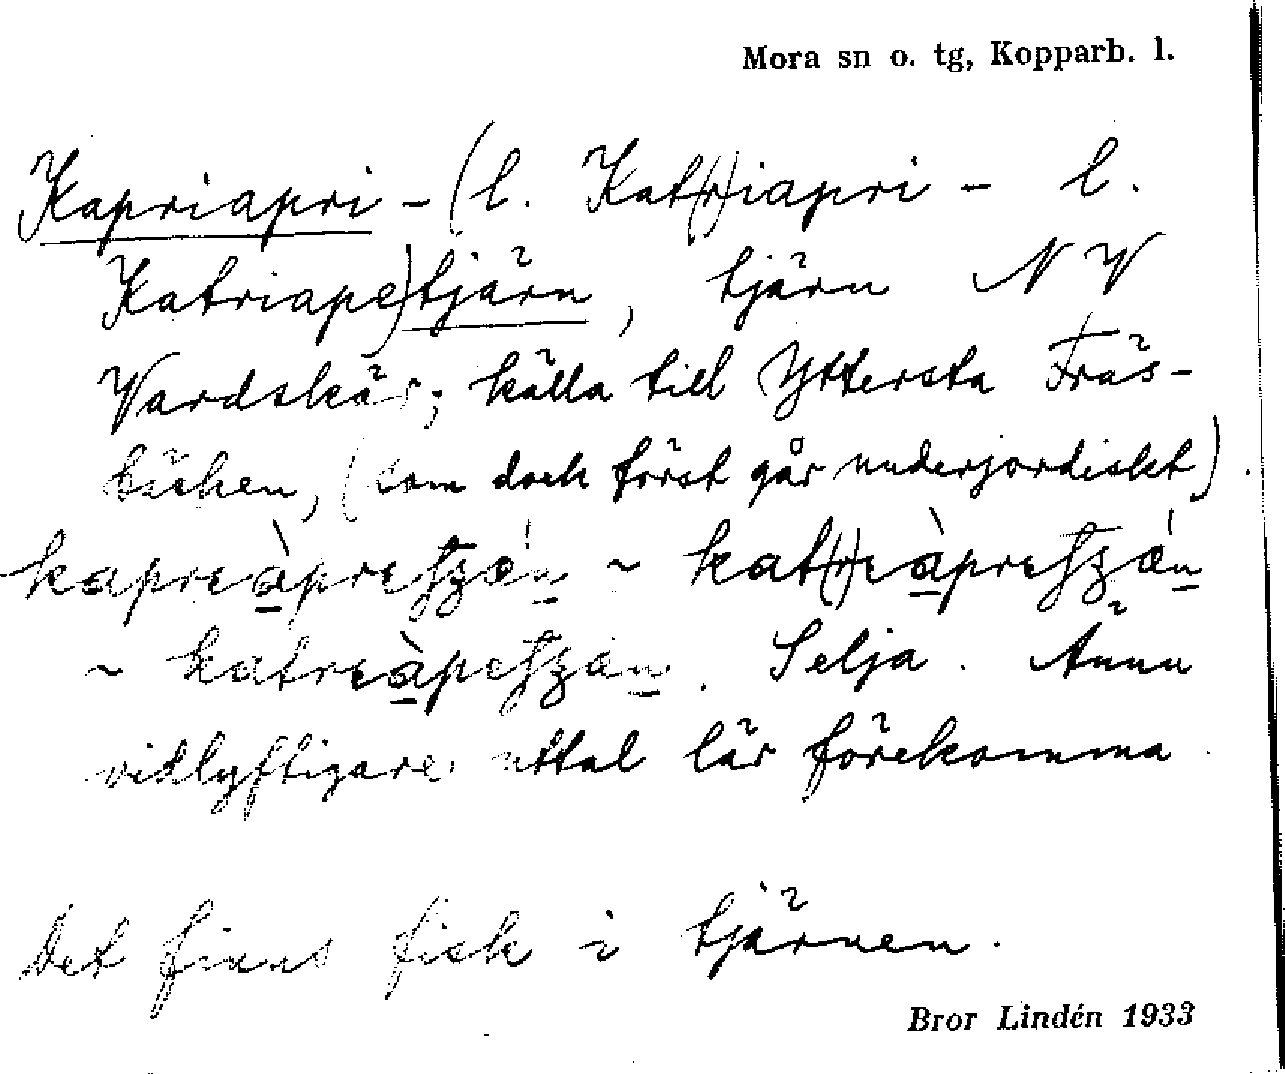 Mora sn o. tg, Kopparb. l.
Kapriapri - (l. Kat(r)iapri - l.
Katriape)tjärn, tjärn NV
Vardskär; källa till Yttersta Fräs-
bäcken, (som dock först går underjordiskt).
Selja. Ännu
vidlyftigare uttal lär förekomma.
Det finns fisk i tjärnen.
Bror Lindén 1933